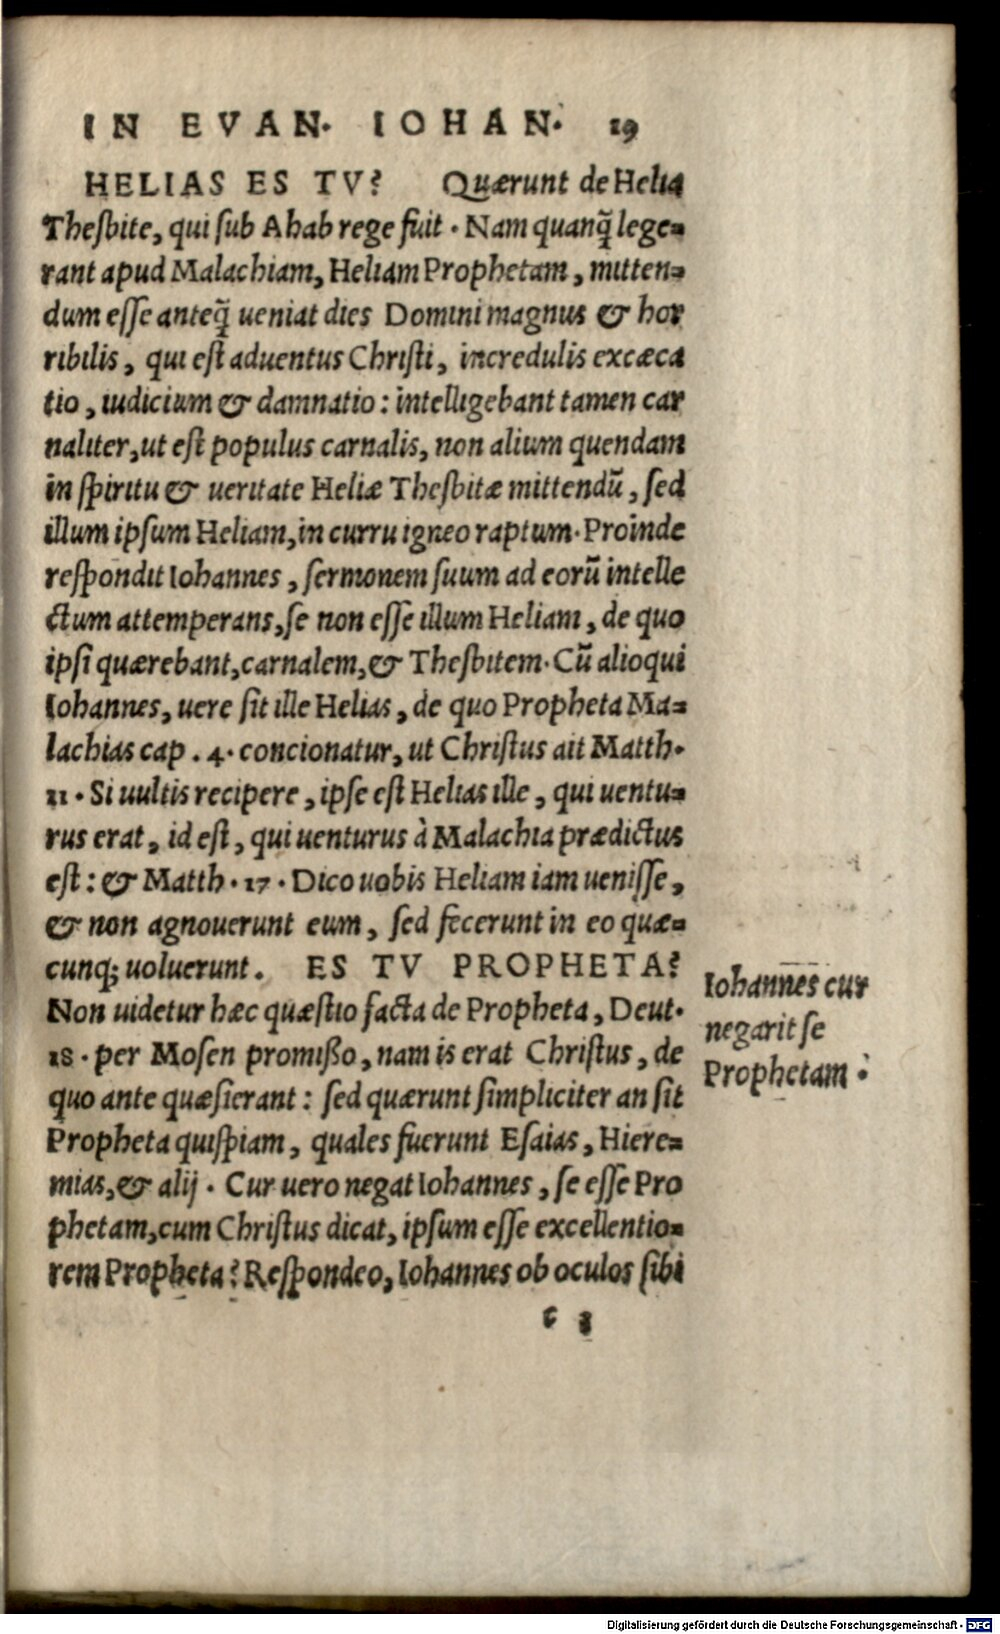 IN EVAN. IOHAN. 19
HELIAS ES TV? Quærunt de Helia
Thesbite, qui ſub Ahab rege fuit. Nam quanq̃ lege-
rant apud Malachiam, Heliam Prophetam, mitten-
dum eſſe anteq̃ ueniat dies Domini magnus & hor
ribilis, qui eſt aduentus Chriſti, incredulis excæca
tio, iudicium & damnatio: intelligebant tamen car
naliter, ut eſt populus carnalis, non alium quendam
in ſpiritu & ueritate Heliæ Thesbitæ mittendū, ſed
illum ipſum Heliam, in curru igneo raptum. Proinde
reſpondit Iohannes, ſermonem ſuum ad eorū intelle
ctum attemperans, ſe non eſſe illum Heliam, de quo
ipſi quærebant, carnalem, & Thesbitem. Cū alioqui
Iohannes, uere ſit ille Helias, de quo Propheta Ma-
lachias cap. 4. concionatur, ut Chriſtus ait Matth.
11. Si uultis recipere, ipſe eſt Helias ille, qui uentu-
rus erat, id eſt, qui uenturus à Malachia prædictus
eſt: & Matth. 17. Dico uobis Heliam iam ueniſſe,
& non agnouerunt eum, ſed fecerunt in eo quæ-
cunq; uoluerunt. ES TV PROPHETA?
Non uidetur hæc quæſtio facta de Propheta, Deut.
18. per Moſen promiſſo, nam is erat Chriſtus, de
quo ante quæſierant: ſed quærunt ſimpliciter an ſit
Propheta quiſpiam, quales fuerunt Eſaias, Hiere-
mias, & alij. Cur uero negat Iohannes, ſe eſſe Pro
phetam, cum Chriſtus dicat, ipſum eſſe excellentio-
rem Propheta? Reſpondeo, Iohannes ob oculos ſibi
c 3
Iohannes cur
negarit ſe
Prophetam.
Digitalisierung gefördert durch die Deutsche Forschungsgemeinschaft - DFG